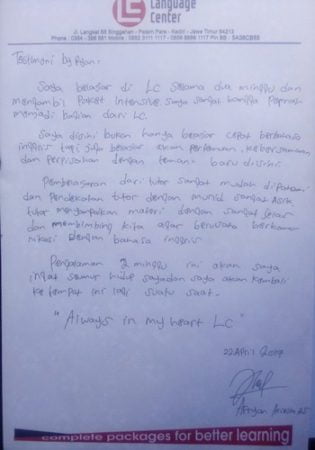 Language
Center
Jl. Langkat 88 Singgahan - Palem - Pare - Kediri - Jawa Timur 64213
Testimoni by Ryan:
Saya belajar di LC selama dua minggu dan
mengambil Paket Intensive saya sangat bangga
menjadi bagian dari LC.
Saya disini bukan hanya belajar cepat berbahasa
inggris tapi juga belajar akan pertemuan, kebersamaan
dan perpisahan dengan teman2 baru disini.
Pembelajaran dari tutor sangat mudah di pahami
dan pendekatan tutor dengan murid sangat asik
tutor menyampaikan materi dengan sangat jelas
dan membimbing kita agar berusaha berkomu
nikasi dengan bahasa inggris.
Pengalaman 2 minggu ini akan saya
ingat seumur hidup saya dan saya akan kembali
ke tempat ini lagi suatu saat.
"Always in my heart LC"
22 April 2017
complete packages for better learning